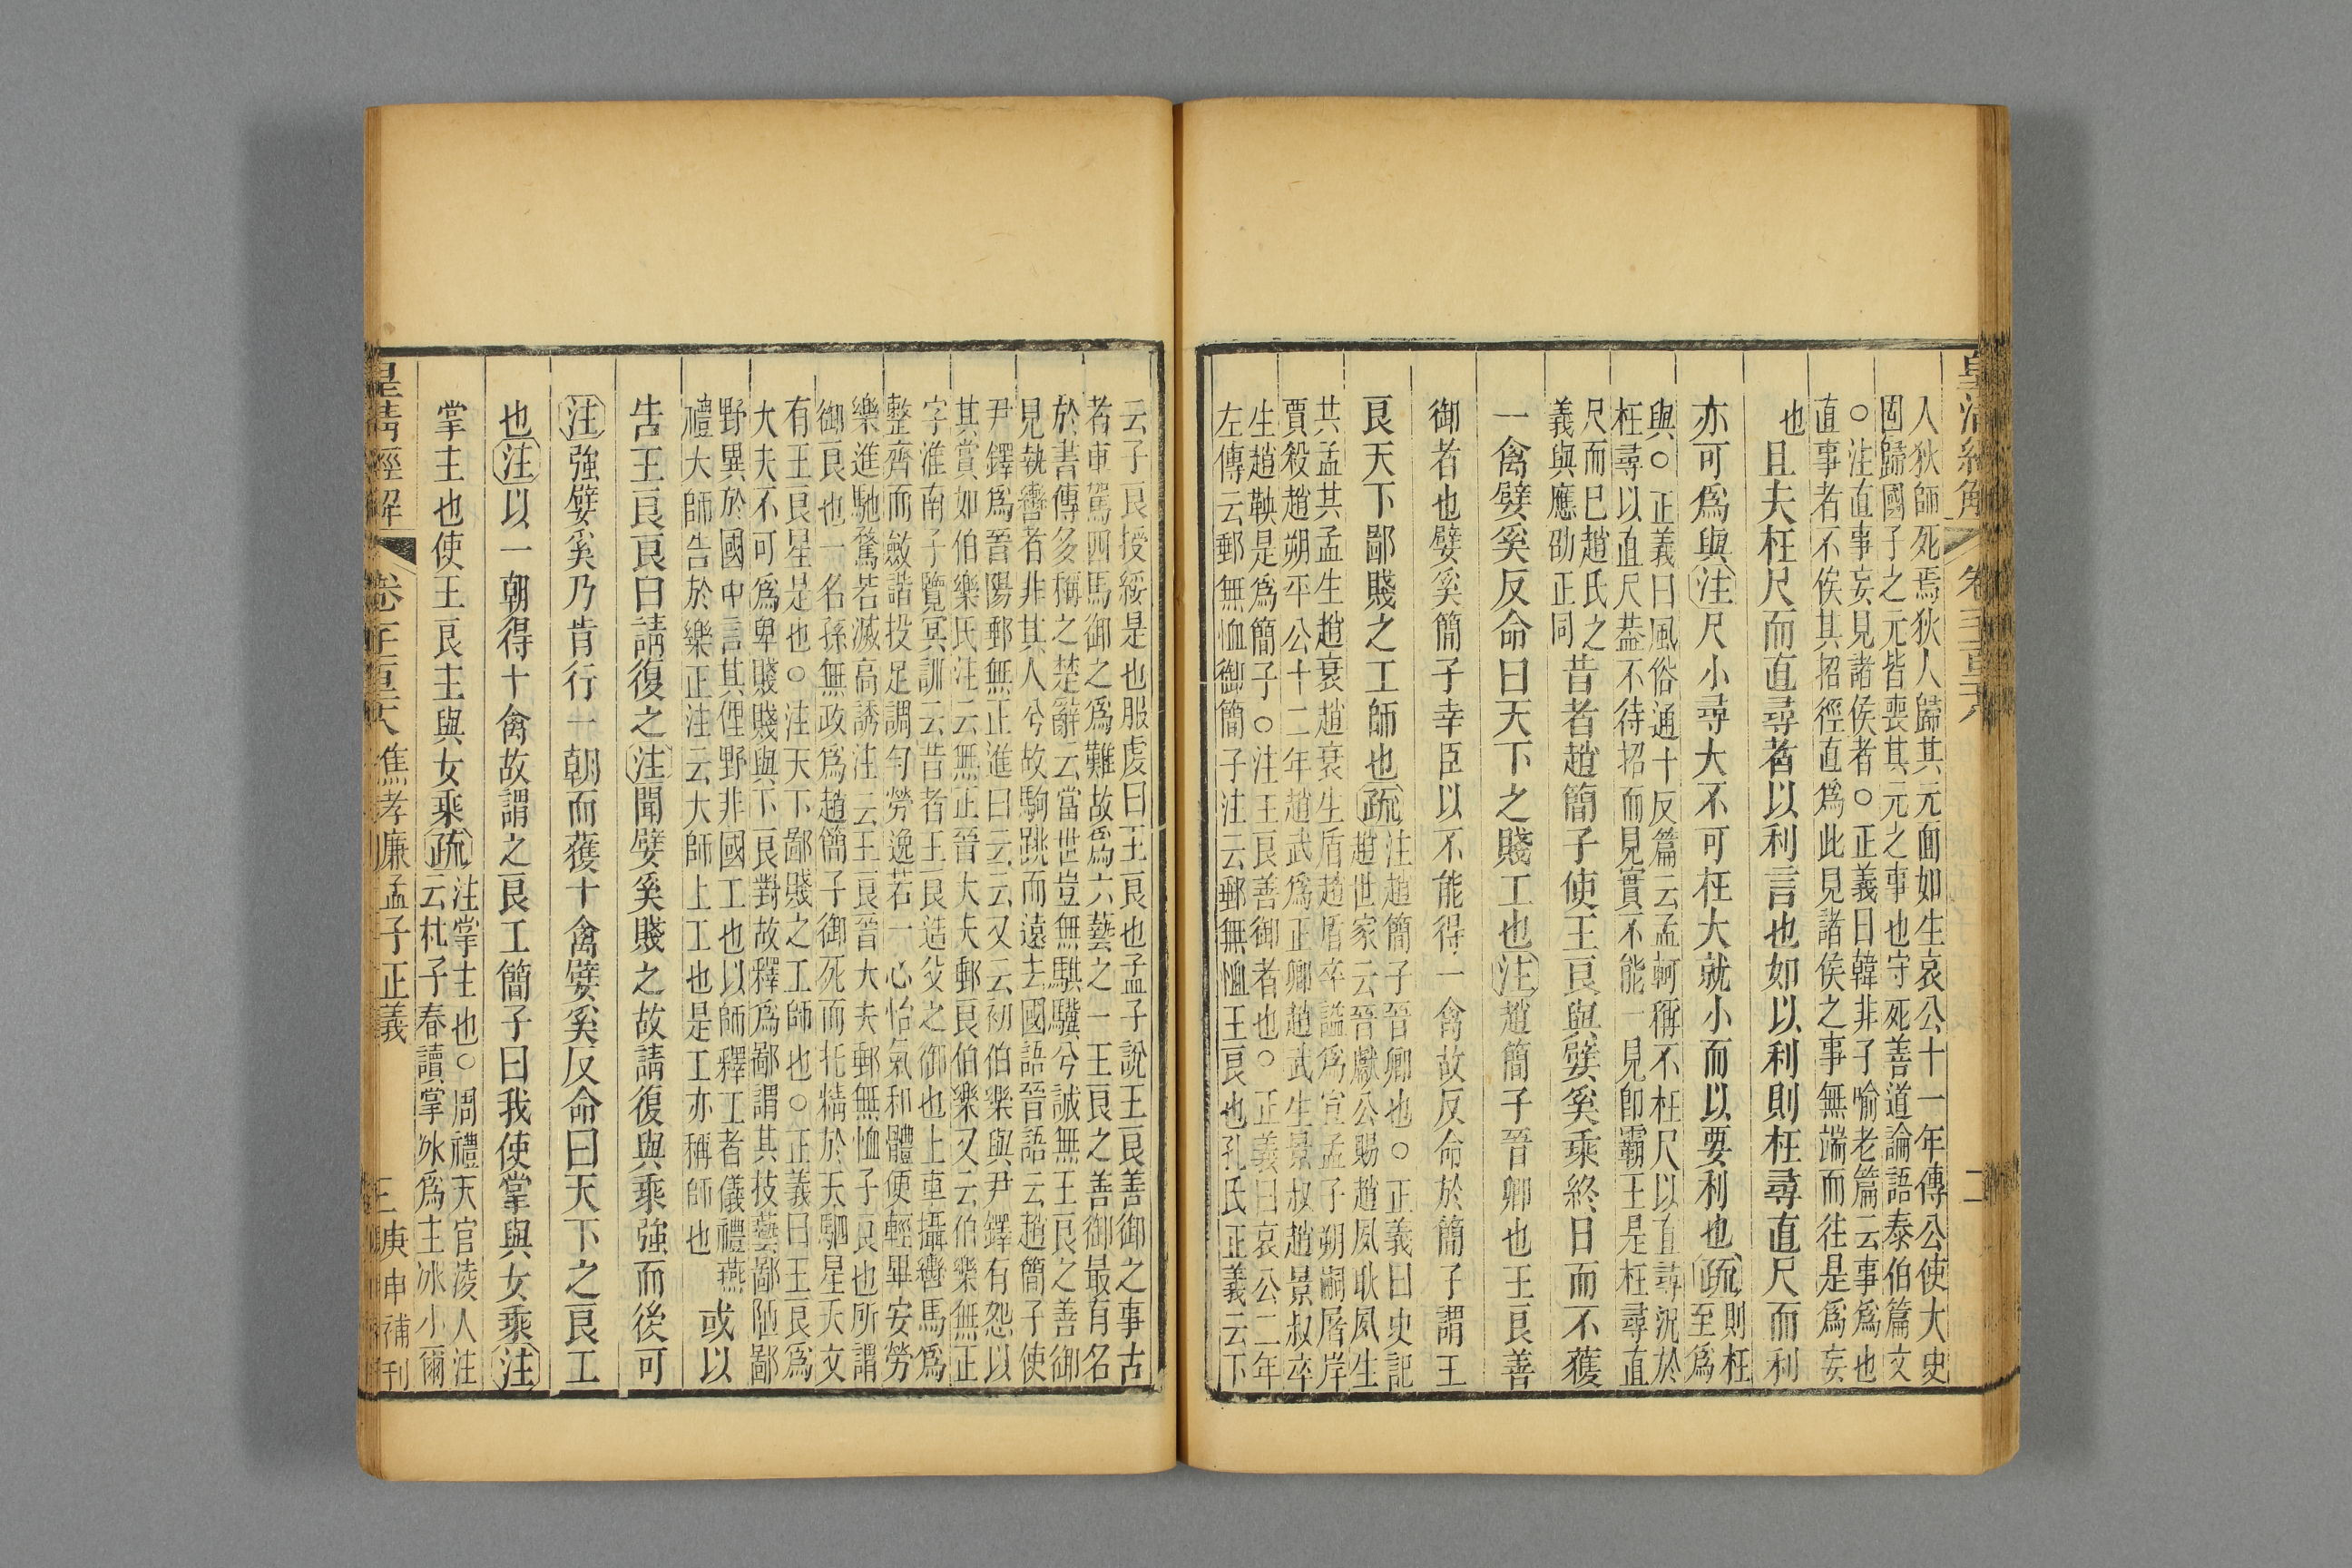 皇清經解
卷
二
人狄師死焉狄人歸其元面如生哀公十一年傳公使大史
固歸國子之元皆喪其元元之事也守死善道論語泰伯篇文
○注直事妄見諸侯者○正義曰韓非子喻老篇云事爲也
直事者不俟其招徑直爲此見諸侯之事無端而往是爲妄
也且夫枉尺而直尋者以利言也如以利則枉尋直尺而利
亦可爲與注尺小尋大不可枉大就小而以要利也疏則枉
至爲
與○正義曰風俗通十反篇云孟軻稱不枉尺以直尋況於
枉尋以直尺葢不待招而見實不能一見卽霸王是枉尋直
尺而巳趙氏之
義與應劭正同
昔者趙簡子使王良與嬖奚乘終日而不獲
一禽嬖奚反命曰天下之賤工也注趙簡子晉卿也王良善
御者也嬖奚簡子幸臣以不能得一禽故反命於簡子謂王
良天下鄙賤之工師也疏注趙簡子晉卿也○正義曰史記
趙世家云晉獻公賜趙夙耿夙生
共孟共孟生趙衰趙衰生盾趙盾卒謚爲宣孟子朔嗣屠岸
賈殺趙朔平公十二年趙武爲正卿趙武生景叔趙景叔卒
生趙鞅是爲簡子○注王良善御者也○正義曰哀公二年
左傳云郵無恤御簡子注云郵無恤王良也孔氏正義云下
云子良授綏是也服虔曰王良也孟子說王良善御之事古
者車駕四馬御之爲難故爲六藝之一王良之善御最有名
於書傳多稱之楚辭云當世豈無騏驥兮誠無王良之善御
見執轡者非其人兮故駒跳而遠去國語晉語云趙簡子使
尹鐸爲晉陽郵無正進曰云云又云初伯樂與尹鐸有怨以
其賞如伯樂氏注云無正晉大夫郵良伯樂又云伯樂無正
字淮南子覽冥訓云昔者王良造父之御也上車攝轡馬爲
整齊而斂諧投足調勻勞逸若一心怡氣和體便輕畢安勞
樂進馳騖若滅高誘注云王良晉大夫郵無恤子良也所謂
御良也一名孫無政爲趙簡子御死而托精於天駟星天文
有王良星是也○注天下鄙賤之工師也○正義曰王良爲
大夫不可爲卑賤賤與下良對故釋爲鄙謂其技藝鄙陋鄙
野異於國中言其俚野非國工也以師釋工者儀禮燕
禮大師告於樂正注云大師上工也是工亦稱師也
或以
告王良良曰請復之注聞嬖奚賤之故請復與乘强而後可
注強嬖奚乃肯行一朝而獲十禽嬖奚反命曰天下之良工
也注以一朝得十禽故謂之良工簡子曰我使掌與女乘注
掌主也使王良主與女乘疏注掌主也○周禮天官淩人注
云杜子春讀掌冰爲主冰小爾
皇清經解
卷三百五十八
焦孝廉孟子正義
三
庚申補刊